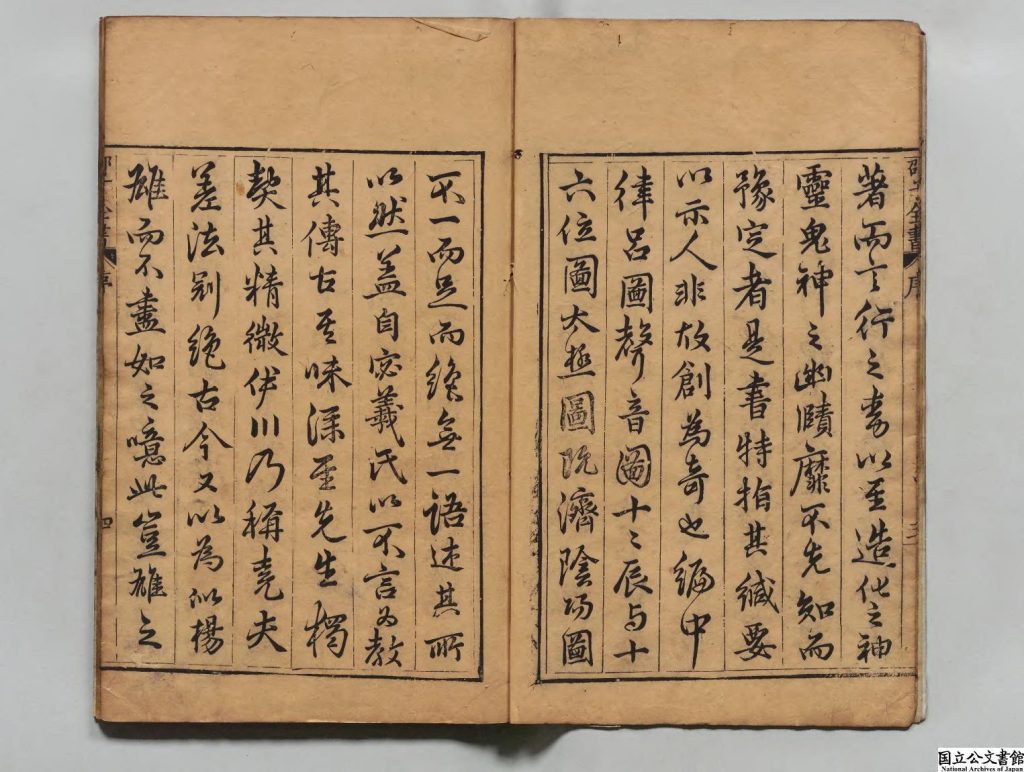 邵子全書 序 三
著而言行之以至造化之神
靈鬼神之幽賾靡不先知而
豫定者是書特指其緘要
以示人非故創為奇也編中
律呂圖聲音圖十二辰與十
六位圖太極圖既濟陰陽圖
不一而足而絕無一語述其所
以然蓋自宓羲氏以不言為教
其傳古其味深至先生獨
契其精微伊川乃稱堯夫
差法絕古今又以為似楊
雄而不盡如之噫此豈雄之
邵子全書 序 四
国立公文書館
National Archives of Japan